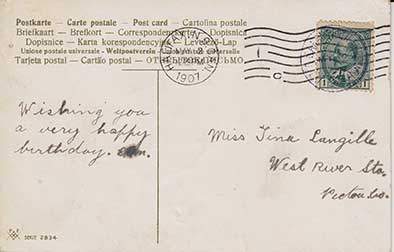 Postkarte – Carte postale – Post card – Cartolina postale
Briefkaart – Brefkort – Correspondenzkarte –
Dopisnice – Karta korespondencyjna – Levelező-Lap
Union postale universelle – Weltpostverein –
Tarjeta postal – Cartão postal – ОТКРЫТОЕ ПИСЬМО
1907
C
Wishing you
a very happy
birthday.
Miss Tina Langille
West River Sta.
Pictou Co.
SERIE 2834